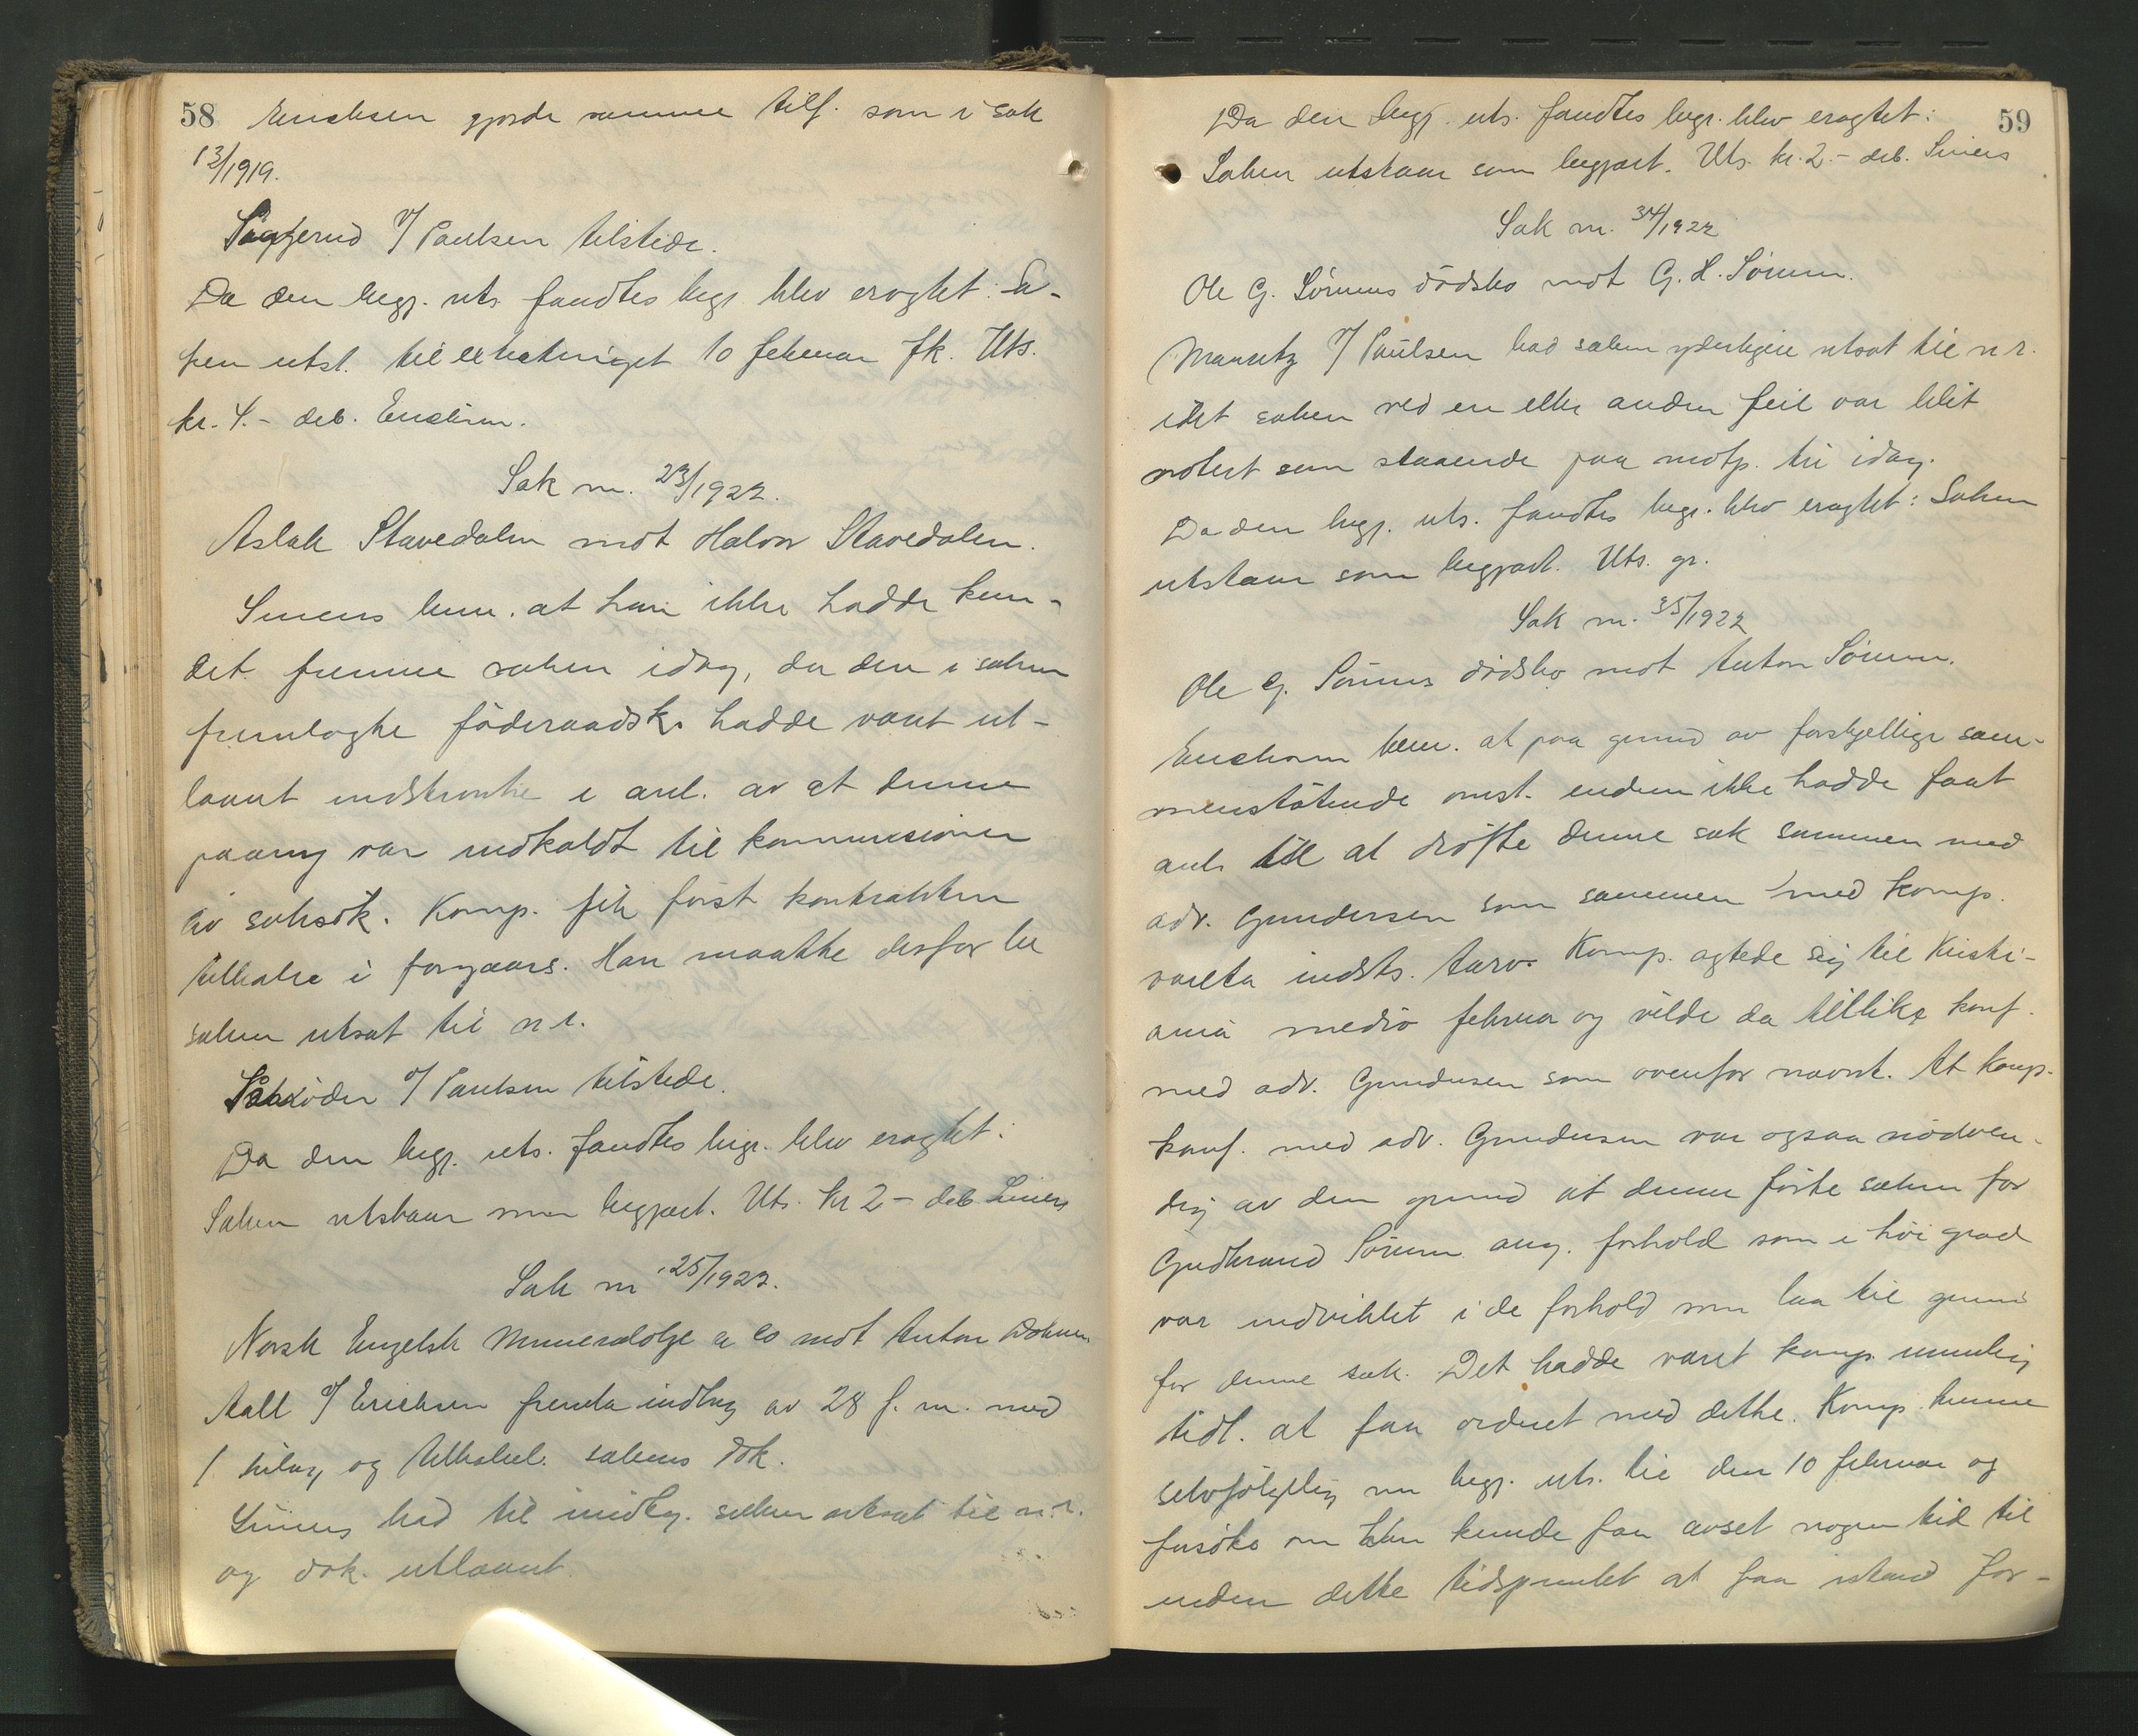 58 Erichsen gjorde samme tilf. som i sak
13/1919.
Saggerud v/ Paulsen tilstede.
Da den begj. uts. fandtes begr. blev eragtet: Sa-
ken utst. til extratinget 10 februar fk. Uts.
kr. 4.- deb. Erichsen.
Sak nr. 23/1922.
Aslak Stavedalen mot Halvor Stavedalen.
Simers bem. at han ikke hadde kun-
det fremme saken idag, da den i saken
fremlagte föderaadsk. hadde vært ut-
laant indstevnte i anl. av at denne
paany var indkaldt til kommisionen
av saksök. Komp. fik först kontrakten
tilbake i forgaars. Han maatte derfor be
saken utsat til n.r.
Schröder v/ Paulsen tilstede.
Da den begj. uts. fandtes begr. blev eragtet:
Saken utstaar som begjært. Uts. kr 2- deb Simers
Sak nr 25/1922.
Norsk Engelsk Mineralolje a/s mot Anton Dokmo
Aall v/ Erichsen fremla indlæg av 28 f. m. med
1 bilag og tilbakel. sakens dok.
Simers bad til imöteg. saken utsat til n.r.
og dok. utlaant.
Da den begj. uts. fandtes begr. blev eragtet: 59
Saken utstaar som begjært. Uts. kr. 2.- deb. Simers
Sak nr. 34/1922
Ole G. Sörums dödsbo mot G. H. Sörum.
Mauritz v/ Paulsen bad saken yderligere utsat til n.r.
idet saken ved en eller anden feil var blit
notert som staaende paa motp. til idag.
Da den begj. uts. fandtes begr. blev eragtet: Saken
utstaar som begjært. Uts. gr.
Sak nr. 35/1922
Ole G. Sörums dödsbo mot Anton Sörum.
Erichsen bem. at paa grund av forskjellige sam-
menstötende omst. endnu ikke hadde faat
anl. til at dröfte denne sak sammen med
adv. Gundersen som sammen med komp.
varetar indsts. tarv. Komp. agtede sig til Kristi-
ania medio februar og vilde da tillike konf.
med adv. Gundersen som ovenfor nævnt. At komp.
konf. med adv. Gundersen var ogsaa nödven-
dig av den grund at denne förte saken for
Gudbrand Sörum ang. forhold som i höi grad
var indviklet i de forhold som laa til grund
for denne sak. Det hadde været komp. umulig
tidl. at faa ordnet med dette. Komp. kunne
selvfölgelig nu begj. uts. til den 10 februar og
forsöke om han kunde faa avset nogen tid til
inden dette tidspunktet at faa istand for-